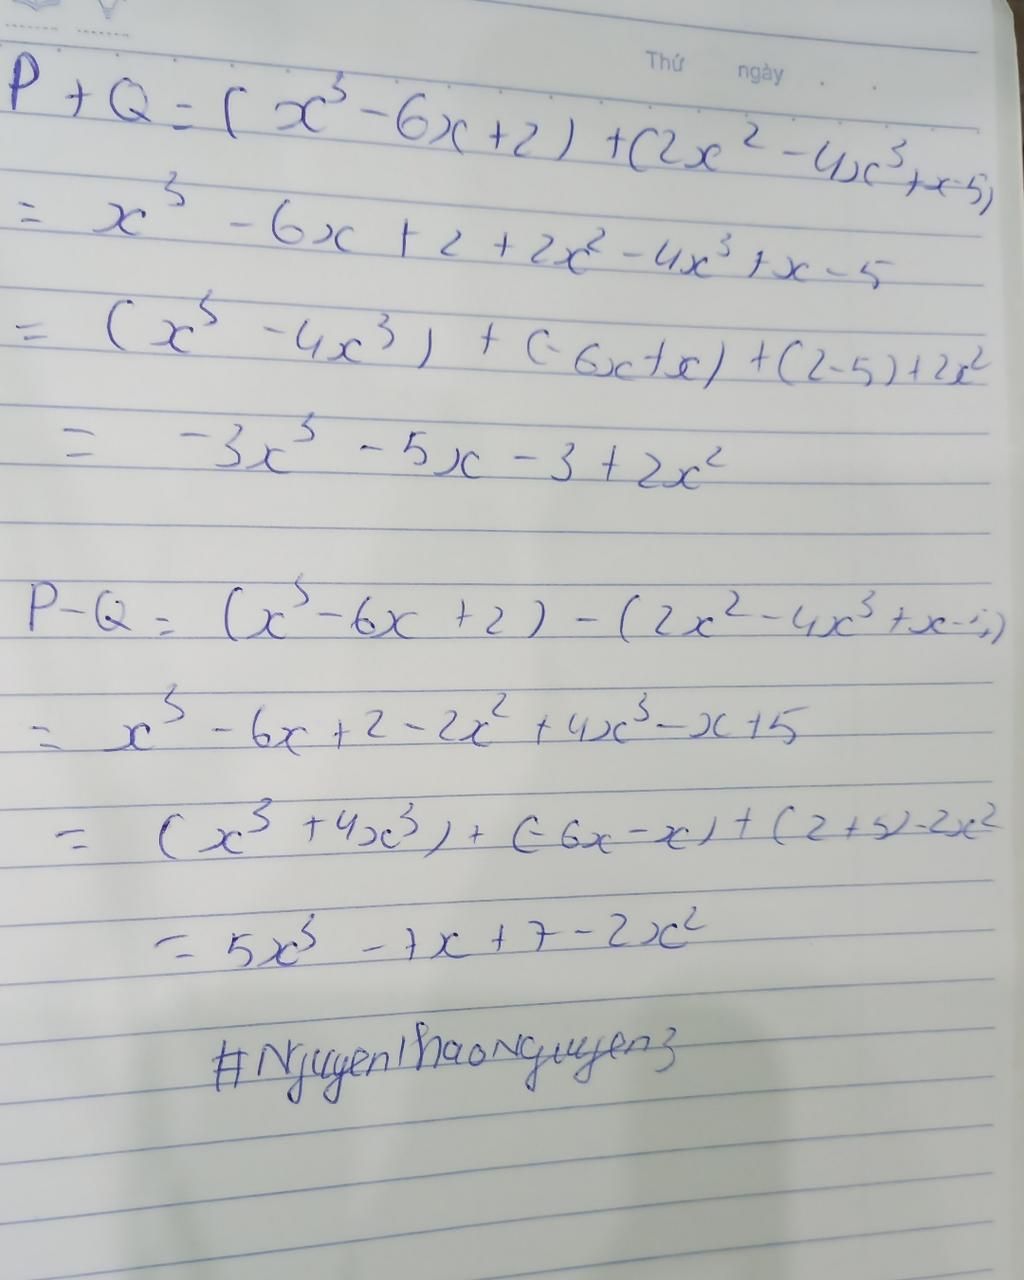 Thứ ngày . .
P + Q = ( x³ - 6x + 2 ) + (2x² - 4x³ + x - 5)
= x³ - 6x + 2 + 2x² - 4x³ + x - 5
= ( x³ - 4x³ ) + (- 6x + x) + (2 - 5) + 2x²
= - 3x³ - 5x - 3 + 2x²
P - Q = (x³ - 6x + 2) - (2x² - 4x³ + x - 5)
= x³ - 6x + 2 - 2x² + 4x³ - x + 5
= (x³ + 4x³) + (- 6x - x) + (2 + 5) - 2x²
= 5x³ - 7x + 7 - 2x²
#NguyenThaoNguyen3